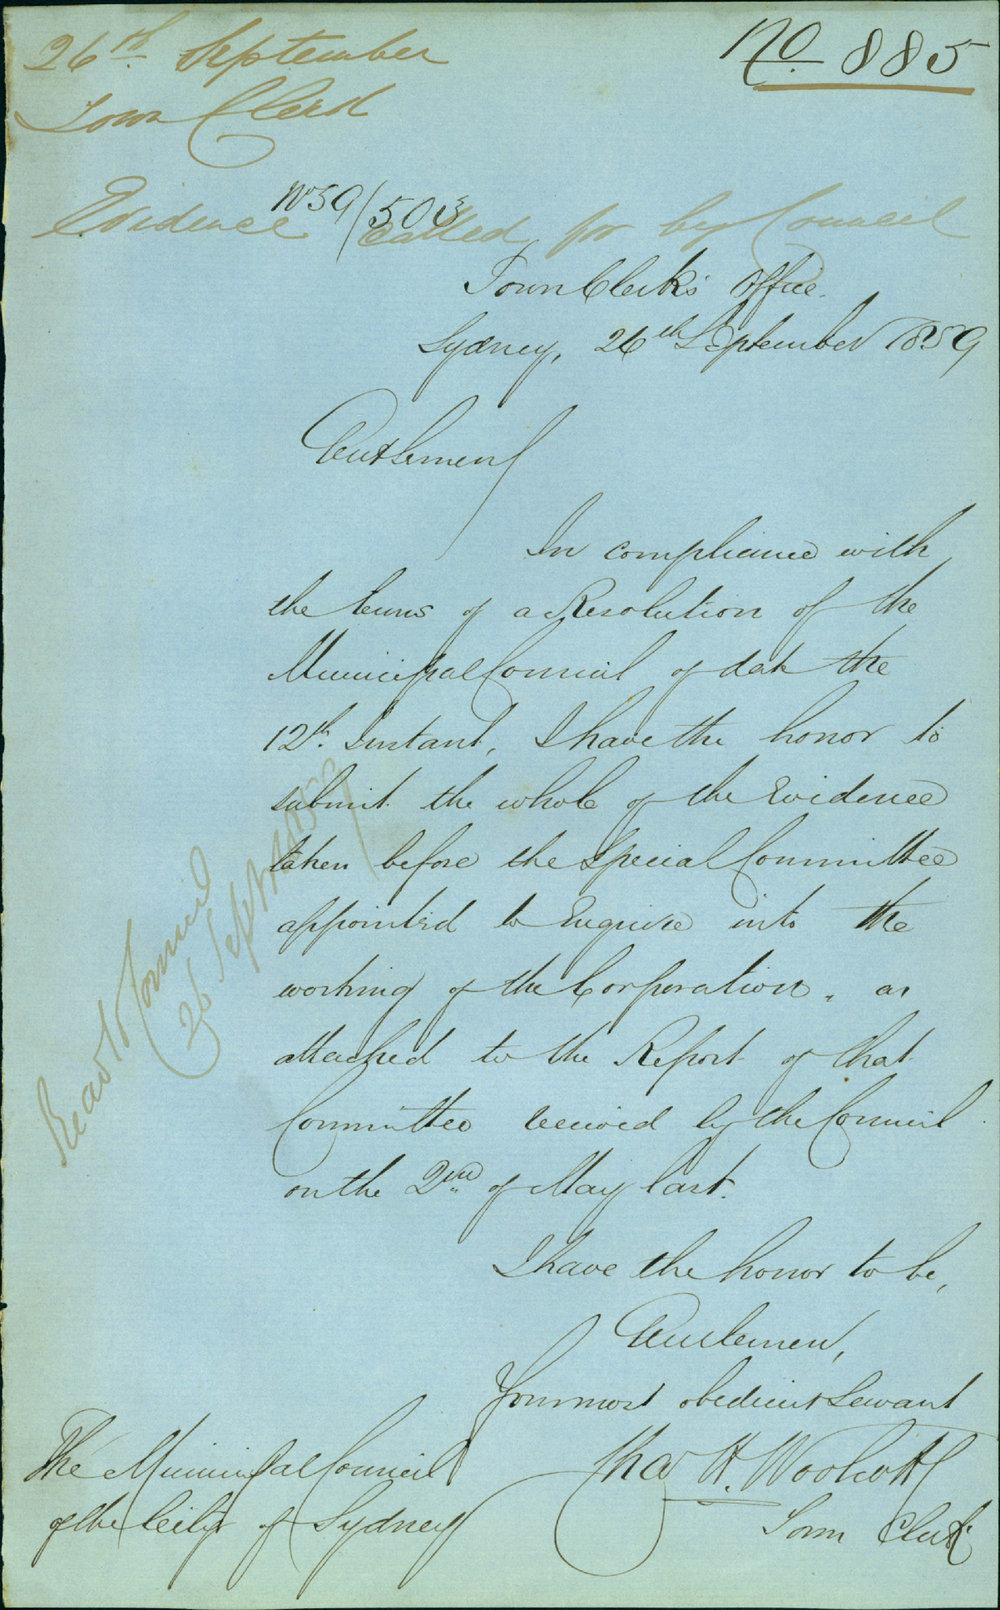 26th September
No. 885
Town Clerk
No 59/503
Evidence called for by Council
Town Clerk's Office.
Sydney, 26th September 1859
Gentlemen
In compliance with
the terms of a Resolution of the
Municipal Council of date the
12th Instant, I have the honor to
submit the whole of the Evidence
taken before the Special Committee
appointed to Enquire into the
working of the Corporation, as
attached to the Report of that
Committee received by the Council
on the 2nd of May last.
Read to Council
26 Sept 1859
I have the honor to be,
Gentlemen,
Your most obedient Servant
Chas H. Woolcott
Town Clerk
The Municipal Council
of the City of Sydney